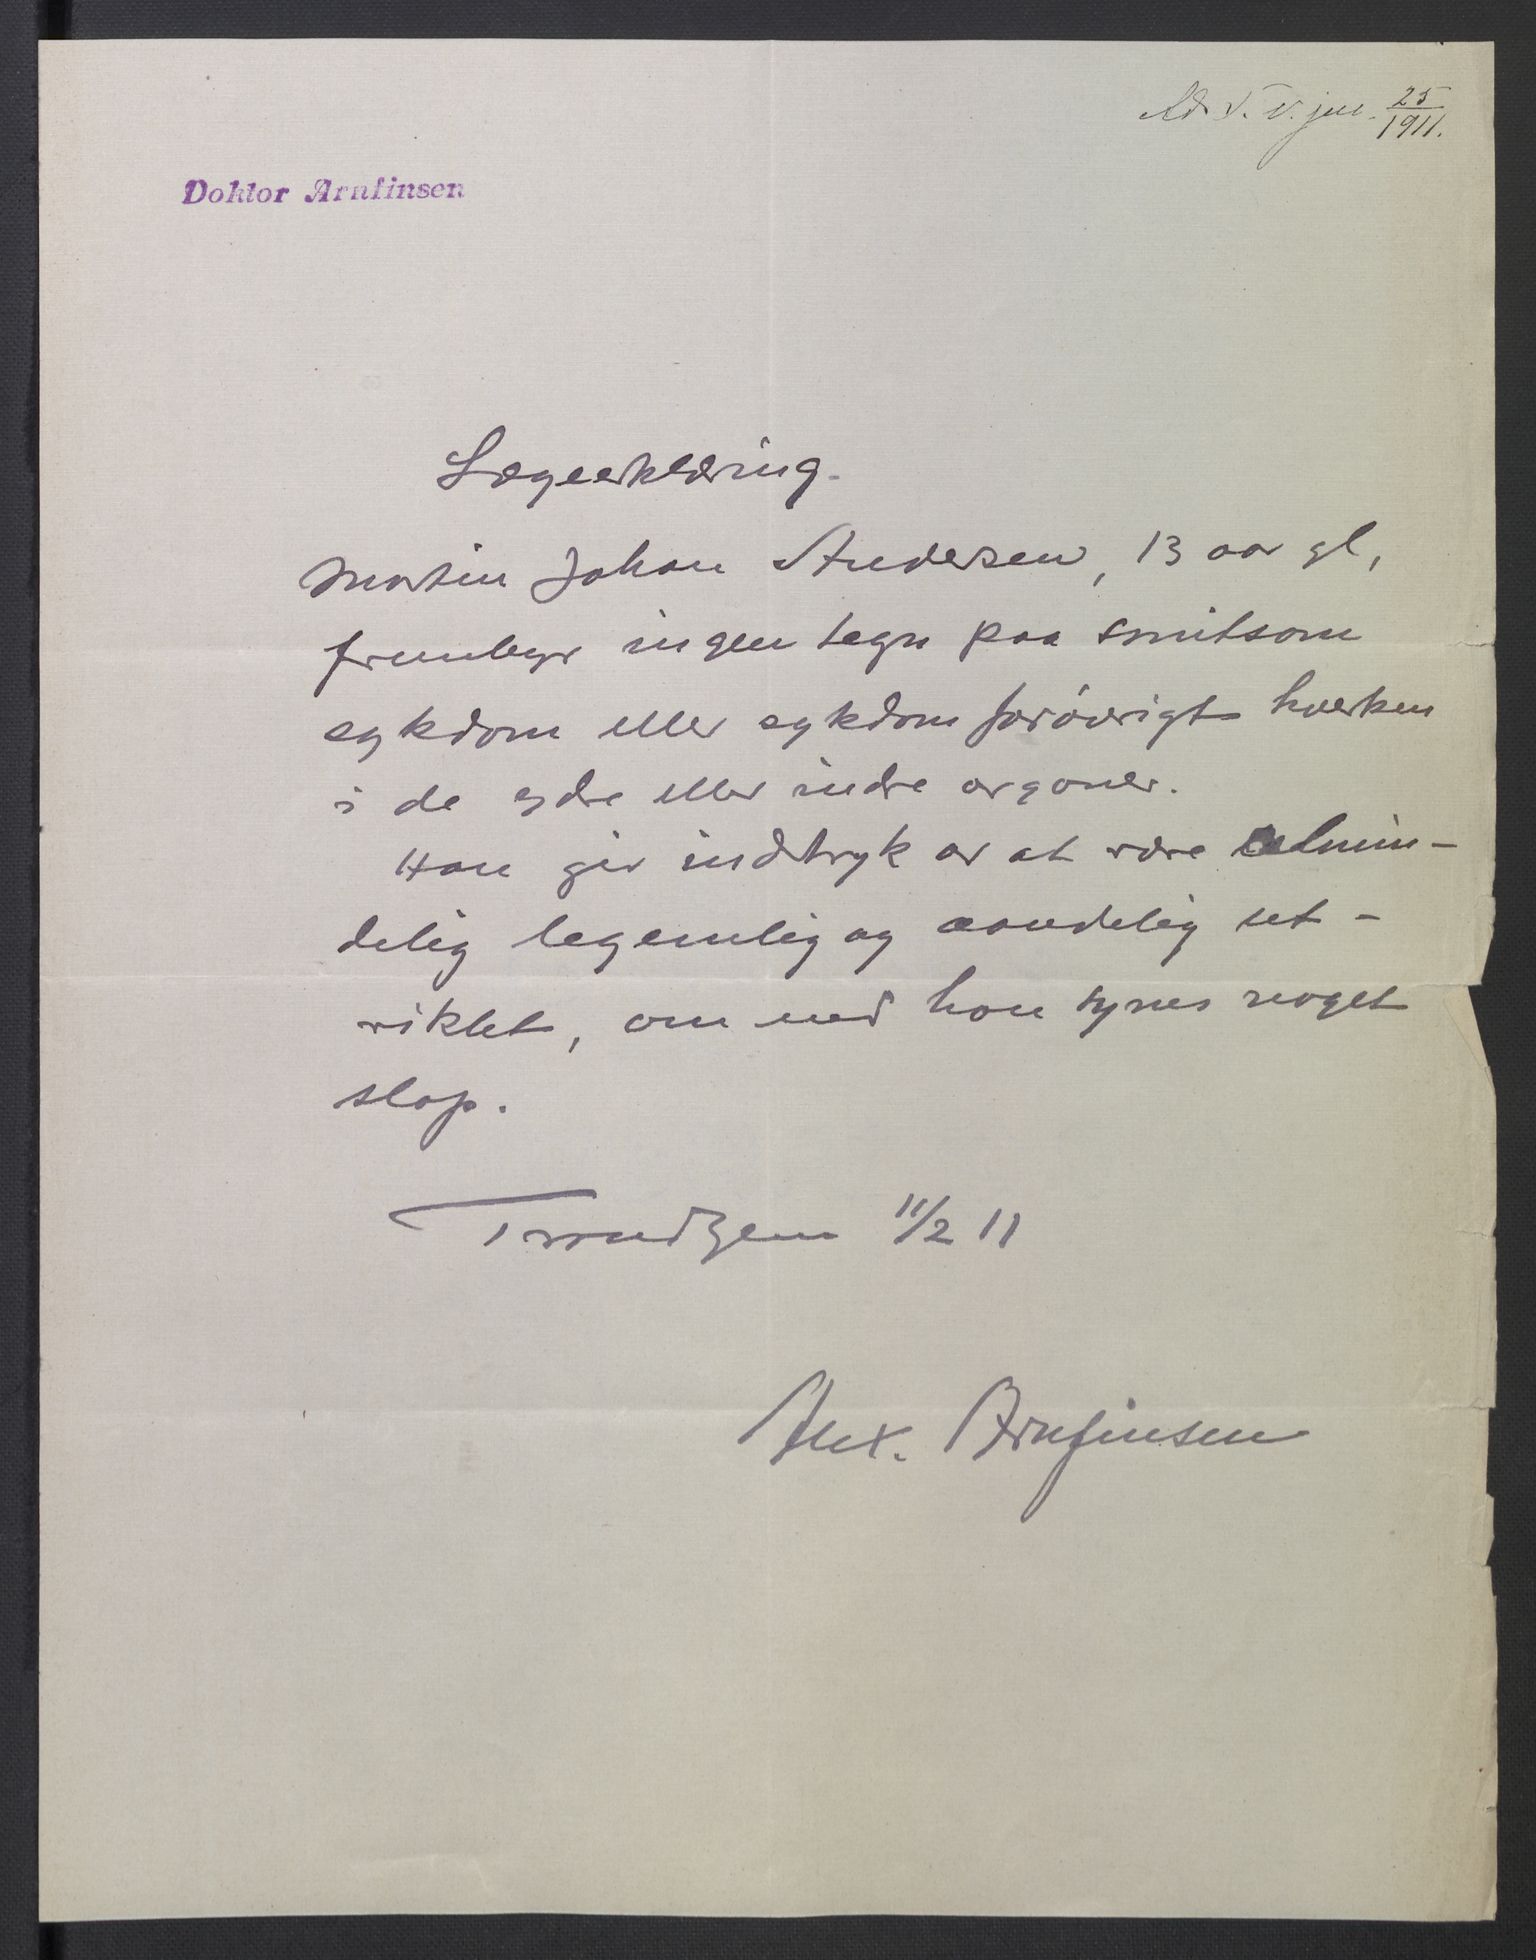 Ad. V. V. jnr. 25/1911.
Doktor Arnfinsen
Lægeerklæring.
Martin Johan Andersen, 13 aar gl,
frembyr ingen tegn paa smitsom
sykdom eller sykdom forövrigt hverken
i de ydre eller indre organer.
Han gir indtryk av at være almin-
delig legemlig og aandelig ut-
viklet, om end han synes noget
slap.
Trondhjem 11/2 11
Alex. Arnfinsen